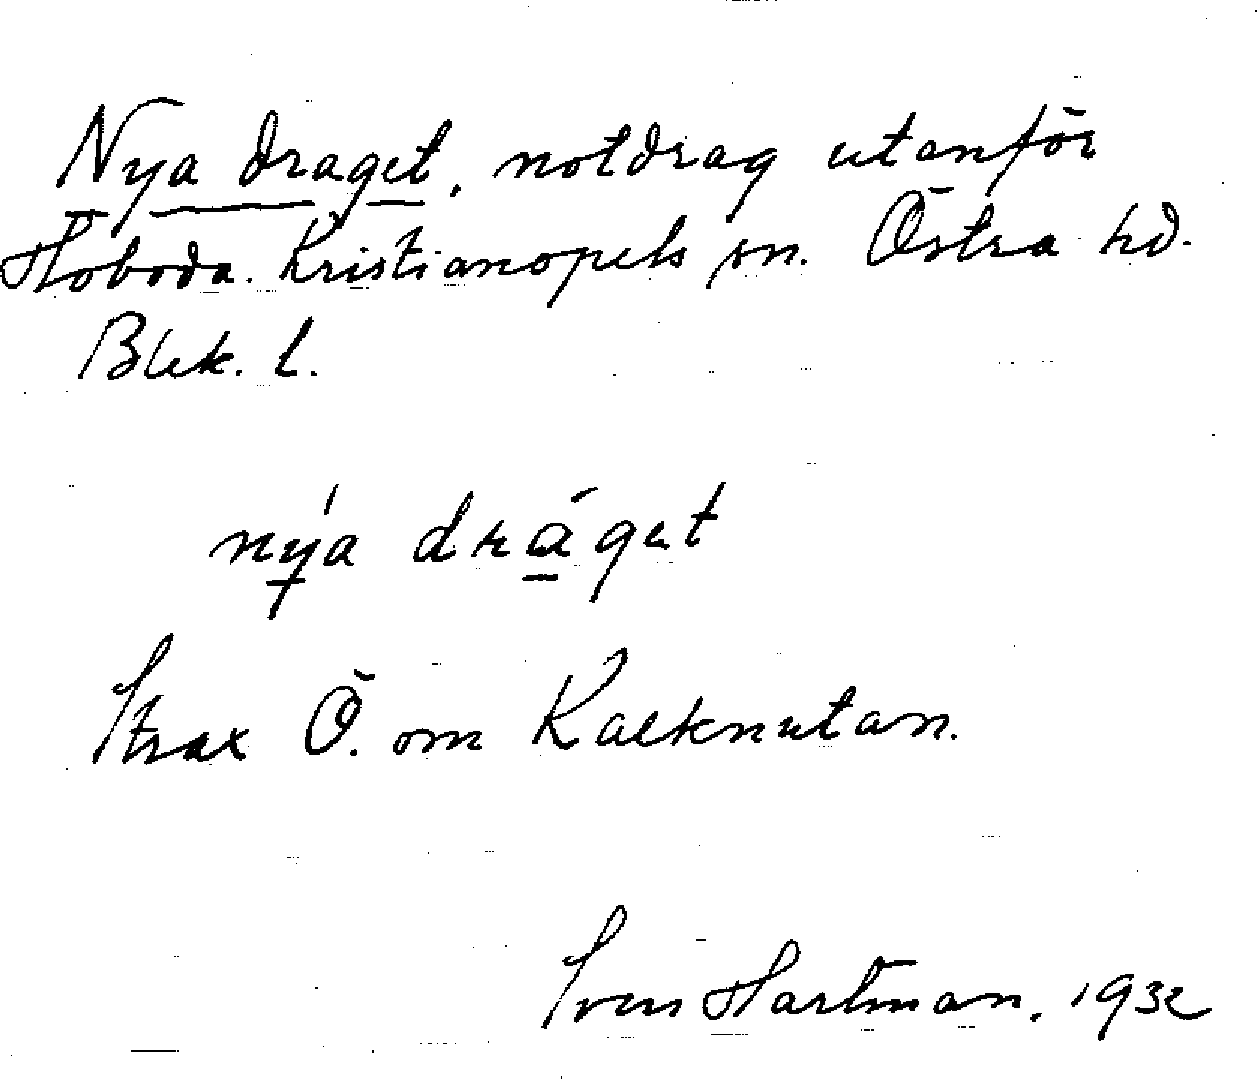 Nya draget, notdrag utanför
Höboda. Kristianopels sn. Östra hd.
Blek. l.
nýa dráget
Strax Ö. om Kalknutan.
Sven Hartman. 1932